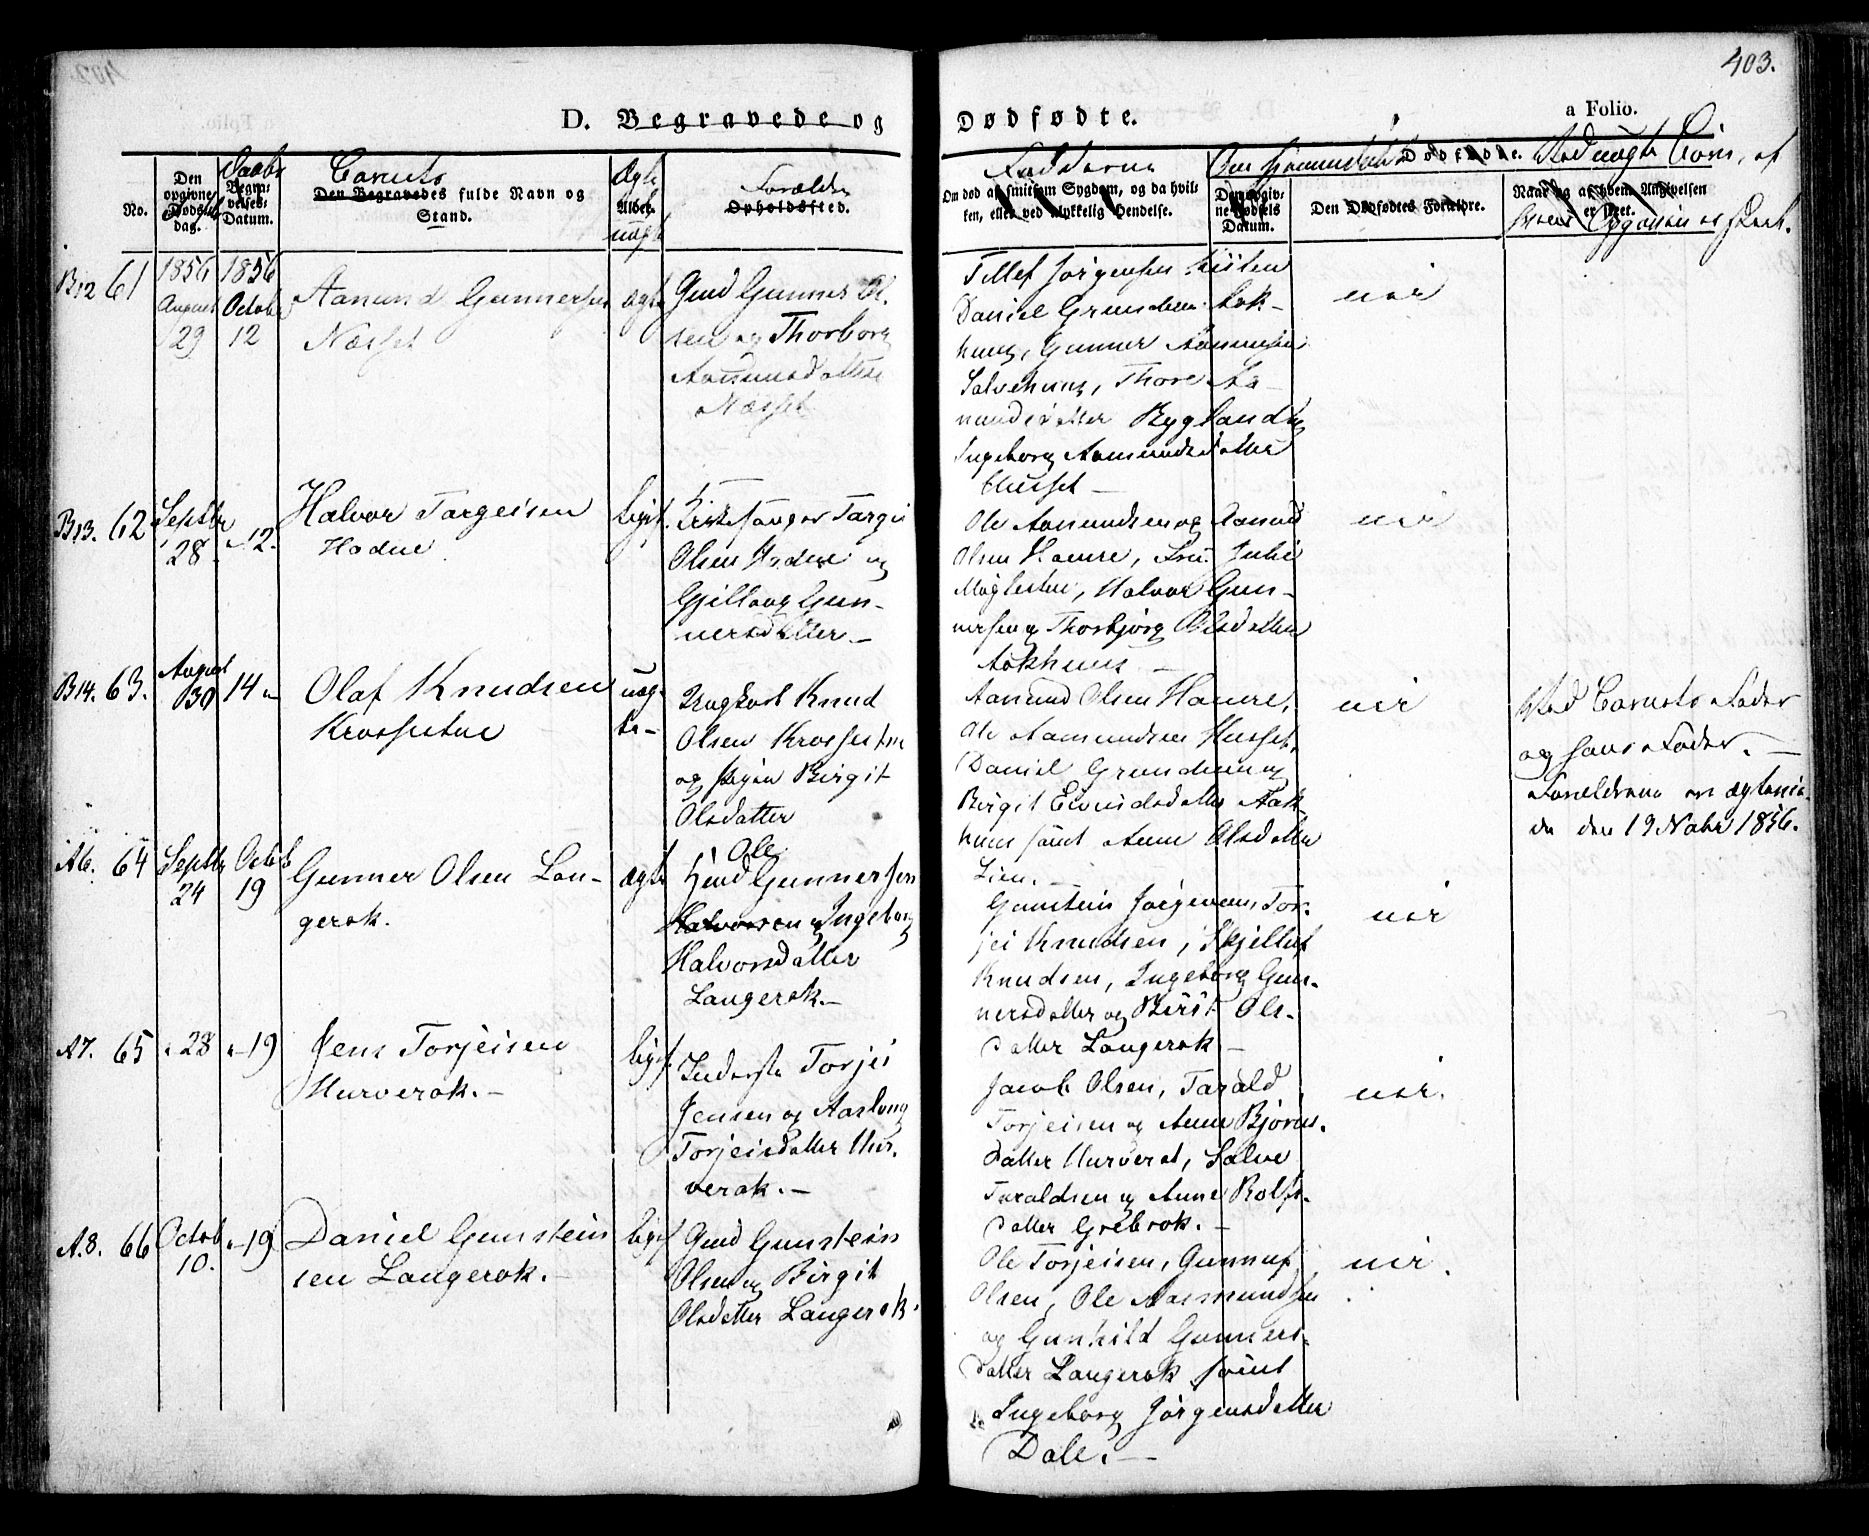 403.
D. Begravede og Dødfødte. a Folio.
No.
Den opgivne Døds-dag.
Daabs
Begra-velses-Datum.
Barnets
Den Begravedes fulde Navn og Stand.
Ægte
Alder.
uægte
Forældre
Opholdssted.
Fadderne
Om død af smitsom Sygdom, og da hvil-
ken, eller ved ulykkelig Hendelse.
Om hjemmedøbt
Dødfødte.
Den opgiv-ne Fødsels Datum.
Den Dødfødtes Forældre.
Ved uægte Børn, af
Naar og af hvem Angivelsen er skeet.
hvem Opgaven er skeet.
B12 61
1856 August 29
1856 Octobr 12
Aanund Gunnersen
Næsset
ægte
Gmd Gunner Ol-
sen og Thorborg
Aanunsdatter
Næsset
Tellef Jørgensen
Daniel Grundesen Aak-
huus, Gunner Aanensen
Salvehuus, Thore Aa-
nundsdatter Bygland og
Ingeborg Aamundsdatter
Husset —
nei
B13. 62
Septbr 28.
" 12.
Halvor Targeisen
Hodne
liges.
Kirkesanger Targei
Olsen Hodne og
Gjellaug Gun-
nersdatter. —
Ole Aamundsen og Aanund
Olsen Hamre, Frü Julie
Møglestue, Halvor Gun-
nersen og Thorbjørg Olsdatter
Aakhuus —
nei
B14. 63.
August 30
14 "
Olaf Knudsen
Krossestue
uæg-
te —
Ungkarl Knud
Olsen Krossestue
og Pigen Birgit
Olsdatter
Aanund Olsen Hamre,
Ole Aamundsen Husset,
Daniel Grundesen og
Birgit Eivindsdatter Aak-
huus samt Anne Olsdatter
Lien. —
nei
Ved Barnets Fader
og hans Fader. —
Forældrene ere ægtevie-
de den 19 Novbr 1856.
A6. 64
Septbr 24
Octob 19
Gunner Olsen Lan-
gerak.
ægte
Ole
Gmd Gunnersen
Halvorsen og Ingeborg
Halvorsdatter
Langerak. —
Gunstein Jørgensen, Tor-
jei Knudsen, Skjelluf
Knudsen, Ingeborg Gun-
nersdatter og Birit Ols-
datter Langerak —
nei
A7. 65
" 28
" 19
Jens Torjeisen
Hurverak. —
liges.
Inderste Torjei
Jensen og Aaslaug
Torjeisdatter Hur-
verak. —
Jacob Olsen, Tarald
Torjeisen og Anne Bjørns-
datter Hurverak, Salve
Taraldsen og Anne Rolfs-
datter Grebrok. —
nei.
A.8. 66
Octob 10.
" 19
Daniel Gunstein
sen Langerak. —
liges
Gmd Gunstein
Olsen og Birgit
Olsdatter Langerak.
Ole Torjeisen, Gunnuf
Olsen, Ole Aasmundsen
og Gunhild Gunners-
datter Langerak samt
Ingeborg Jørgensdatter
Dale. —
nei.